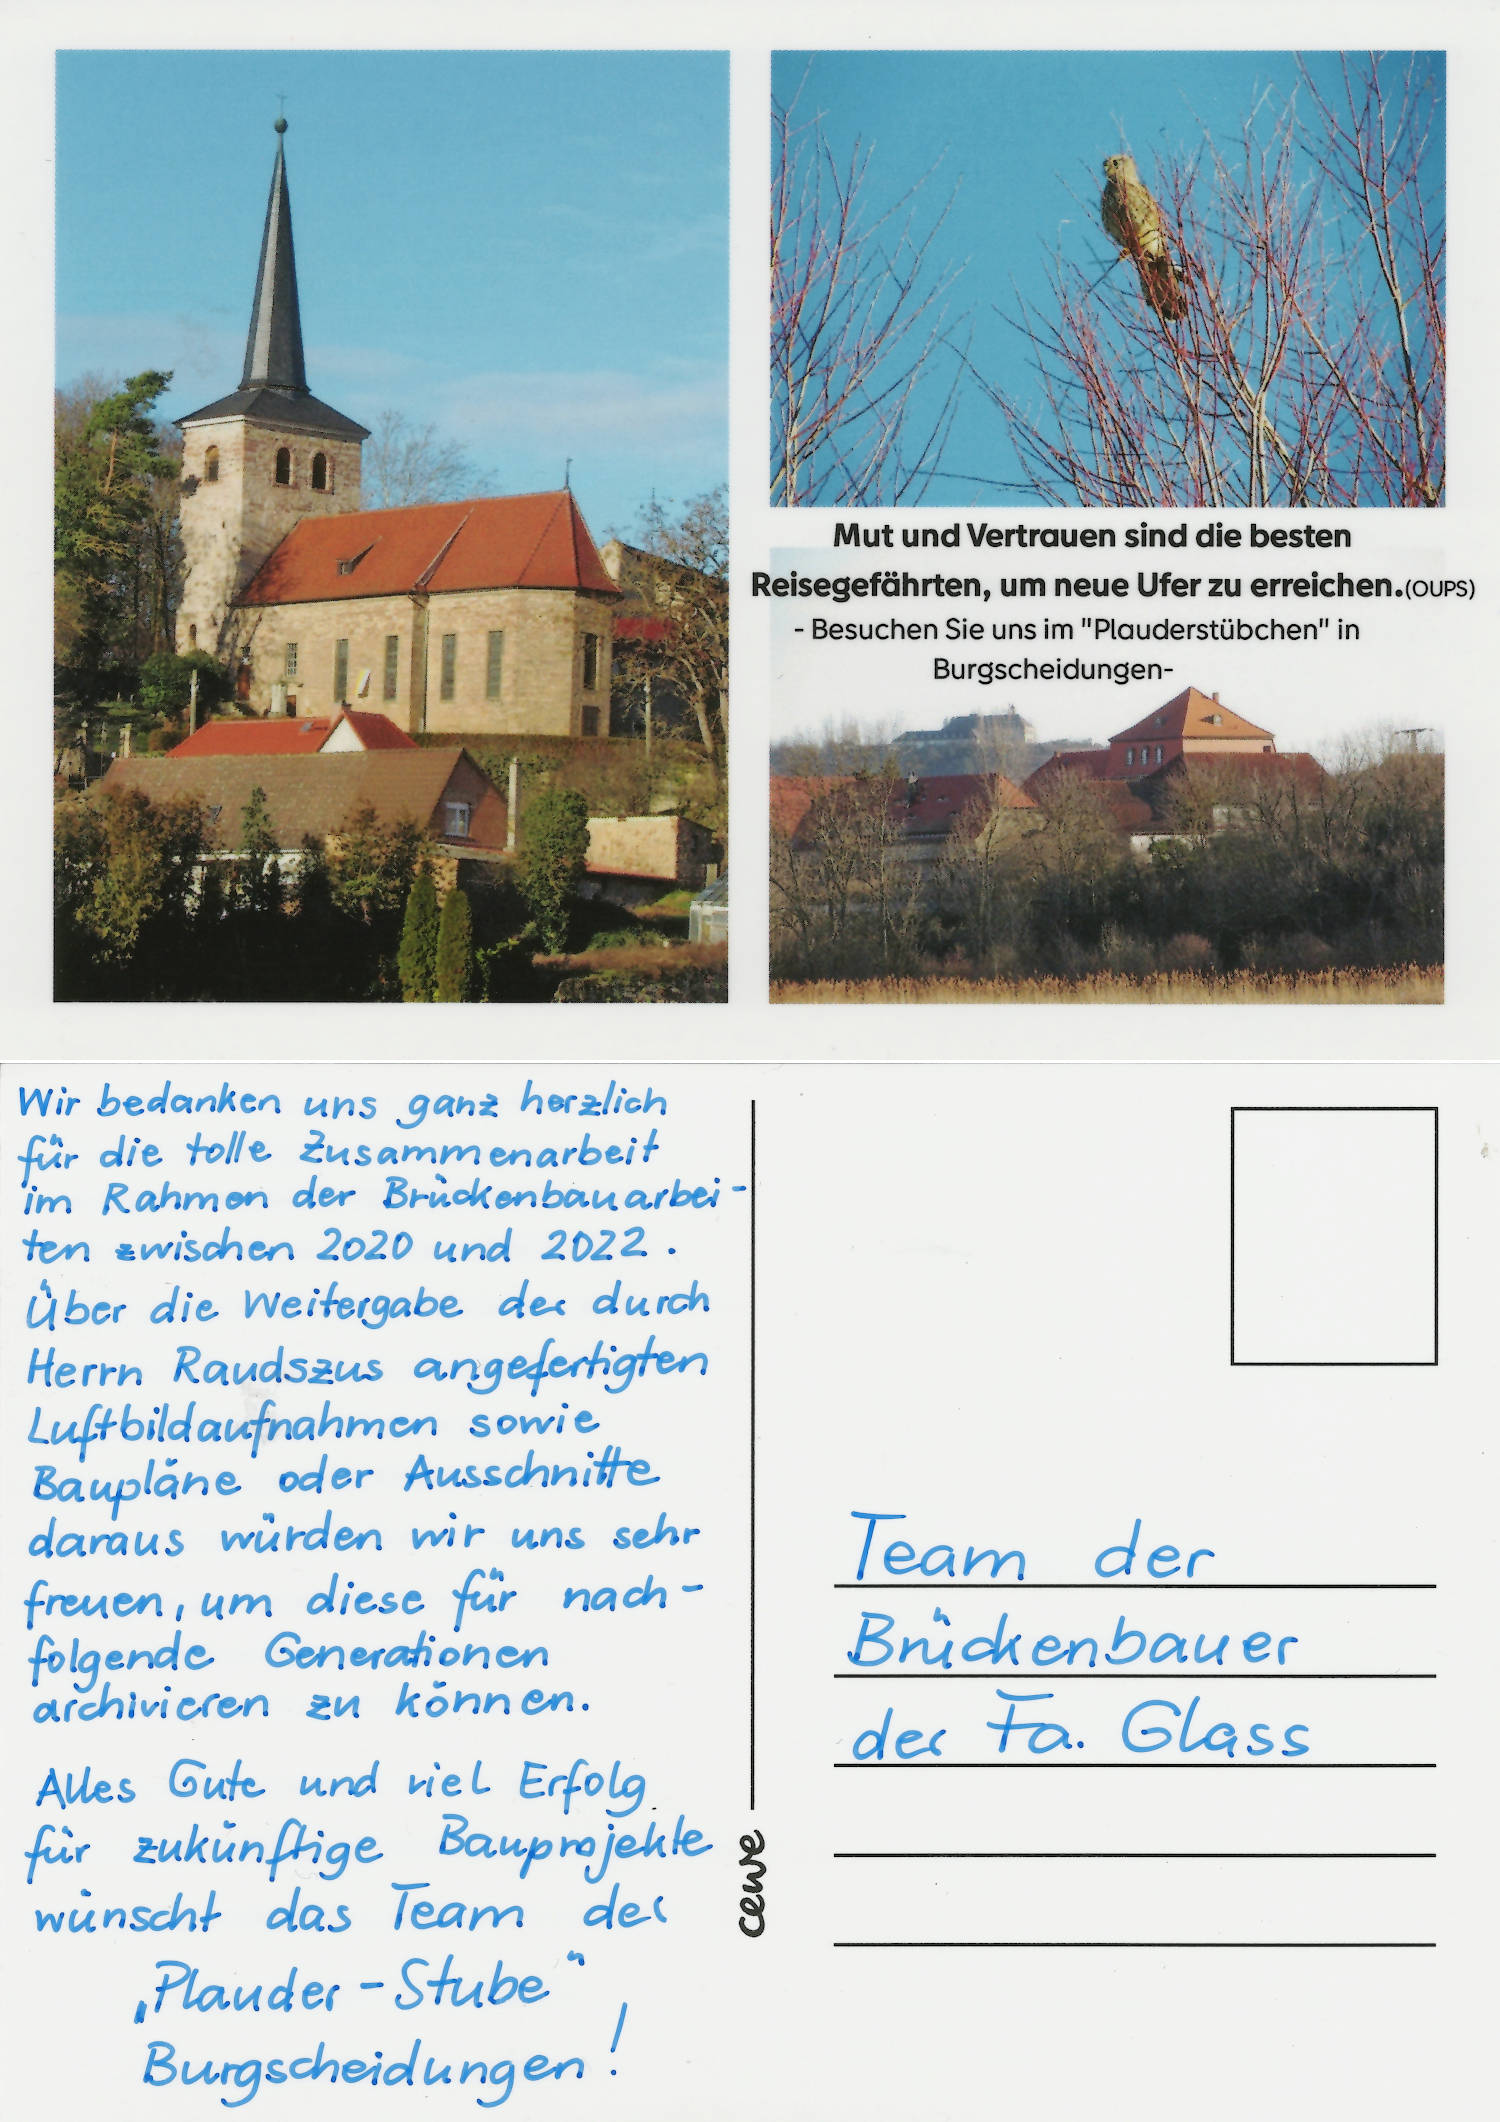 Mut und Vertrauen sind die besten
Reisegefährten, um neue Ufer zu erreichen.(OUPS)
- Besuchen Sie uns im "Plauderstübchen" in
Burgscheidungen-
Wir bedanken uns ganz herzlich
für die tolle Zusammenarbeit
im Rahmen der Brückenbauarbei-
ten zwischen 2020 und 2022.
Über die Weitergabe der durch
Herrn Raudszus angefertigten
Luftbildaufnahmen sowie
Baupläne oder Ausschnitte
daraus würden wir uns sehr
freuen, um diese für nach-
folgende Generationen
archivieren zu können.
Alles Gute und viel Erfolg
für zukünftige Bauprojekte
wünscht das Team der
„Plauder-Stube"
Burgscheidungen!
cewe
Team der
Brückenbauer
der Fa. Glass